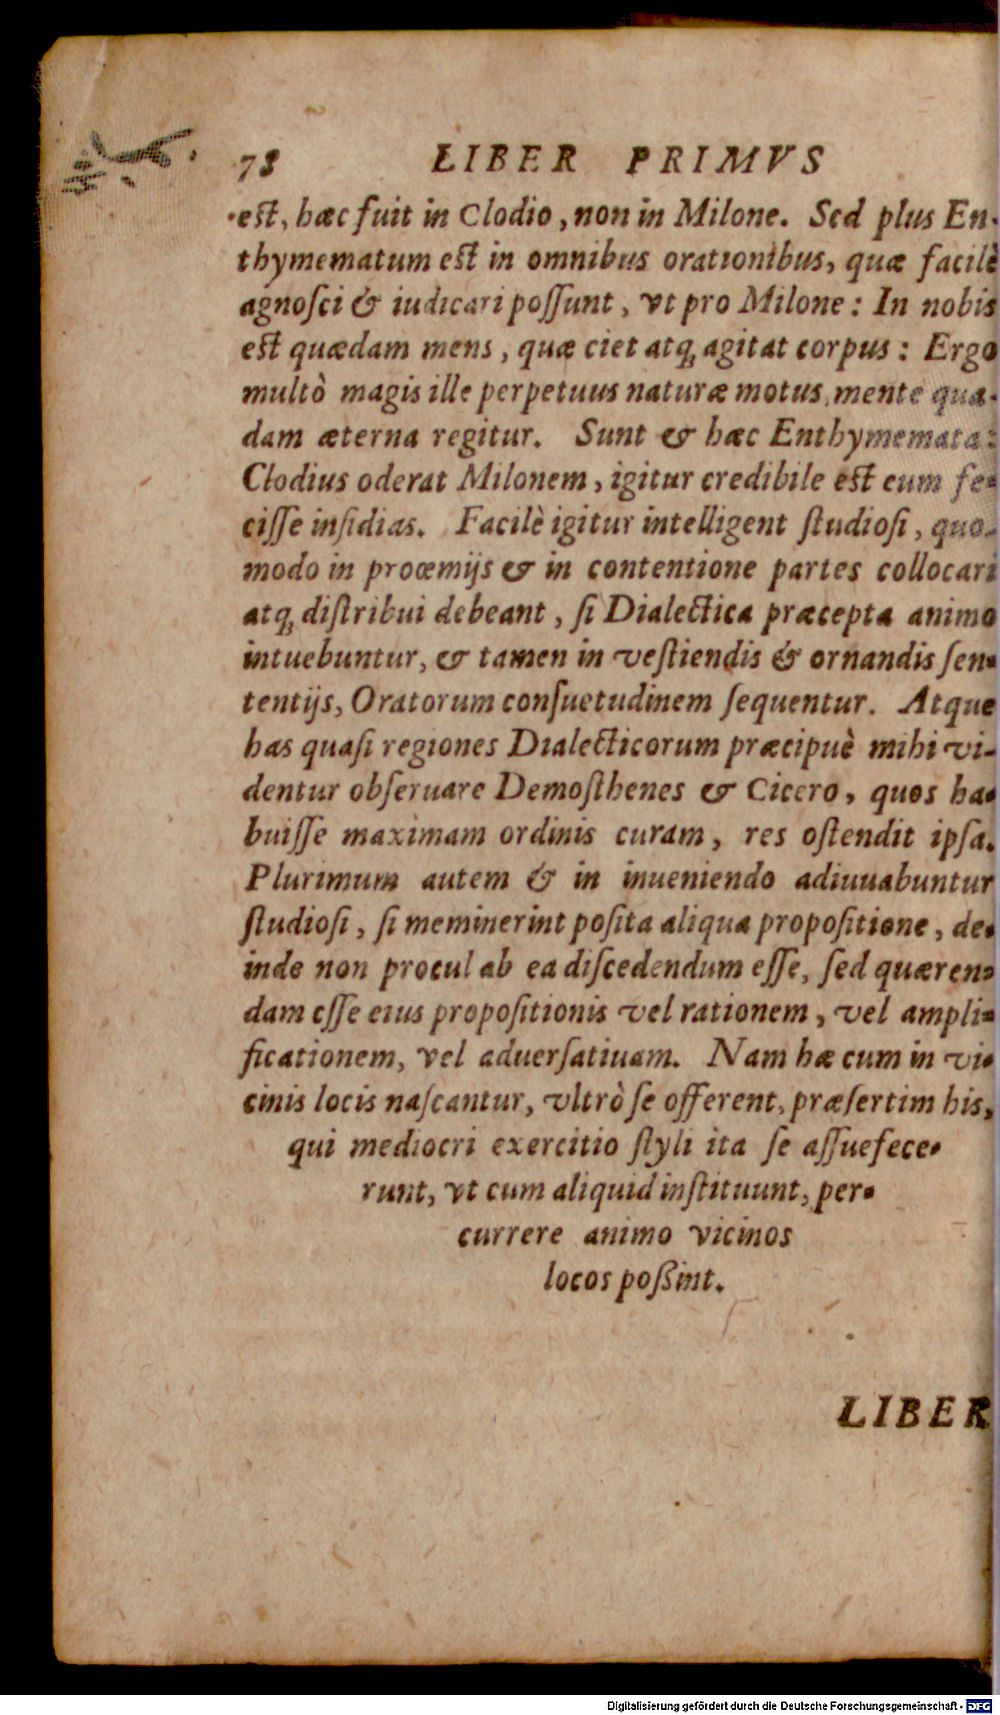 78 LIBER PRIMVS
est, hæc fuit in Clodio, non in Milone. Sed plus En-
thymematum est in omnibus orationibus, quæ facilè
agnoſci & iudicari poſſunt, vt pro Milone: In nobis
est quædam mens, quæ ciet atq́; agitat corpus: Ergo
multò magis ille perpetuus naturæ motus, mente qua-
dam æterna regitur. Sunt & hæc Enthymemata:
Clodius oderat Milonem, igitur credibile est eum fe-
ciſſe inſidias. Facilè igitur intelligent ſtudioſi, quo-
modo in proœmijs & in contentione partes collocari
atq́; diſtribui debeant, ſi Dialectica præcepta animo
intuebuntur, & tamen in veſtiendis & ornandis ſen-
tentijs, Oratorum conſuetudinem ſequentur. Atque
has quaſi regiones Dialecticorum præcipuè mihi vi-
dentur obſeruare Demoſthenes & Cicero, quos ha-
buiſſe maximam ordinis curam, res oſtendit ipſa.
Plurimum autem & in inueniendo adiuuabuntur
ſtudioſi, ſi meminerint poſita aliqua propoſitione, de-
inde non procul ab ea diſcedendum eſſe, ſed quæren-
dam eſſe eius propoſitionis vel rationem, vel ampli-
ficationem, vel aduerſatiuam. Nam hæ cum in vi-
cinis locis naſcantur, vltrò ſe offerent, præſertim his,
qui mediocri exercitio ſtyli ita ſe aſſuefece-
runt, vt cum aliquid inſtituunt, per-
currere animo vicinos
locos poßint.
LIBER
Digitalisierung gefördert durch die Deutsche Forschungsgemeinschaft - DFG